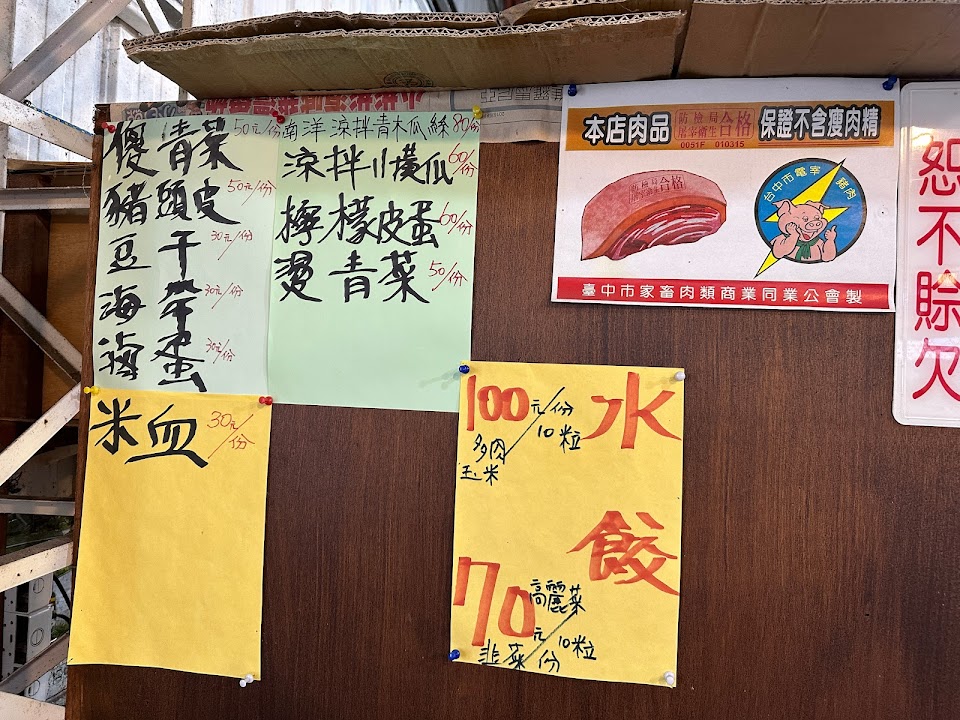 傻青菜 50元/份
豬頭皮 50元/份
豆干 30元/份
海帶 30元/份
滷蛋 30元/份
南洋涼拌青木瓜絲 80/份
涼拌小黃瓜 60/份
檸檬皮蛋 60/份
燙青菜 50/份
米血 30元/份
水餃
100元/份 10粒
多肉
玉米
70元/份 10粒
高麗菜
韭菜
本店肉品 防檢局 屠宰衛生 合格 0051F 010315 保證不含瘦肉精
防檢局 屠宰衛生 合格
台中市電宰豬肉
臺中市家畜肉類商業同業公會製
恕不賒欠